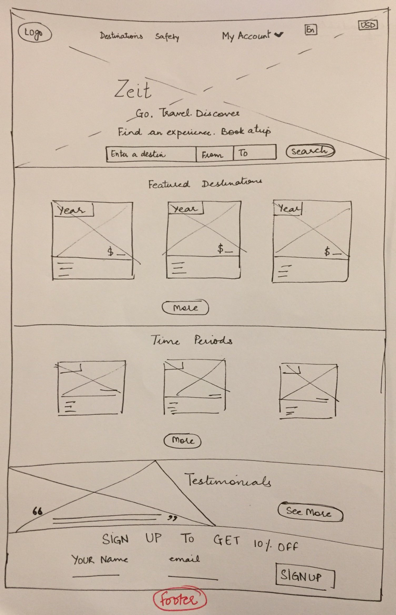 Logo Destinations Safety My Account En USD
Zeit
Go. Travel. Discover
Find an experience. Book a trip
Enter a destin From To Search
Featured Destinations
Year Year Year
$ $ $
More
Time Periods
More
Testimonials
“ ”
See More
SIGN UP TO GET 10% OFF
YOUR Name email
SIGNUP
footer